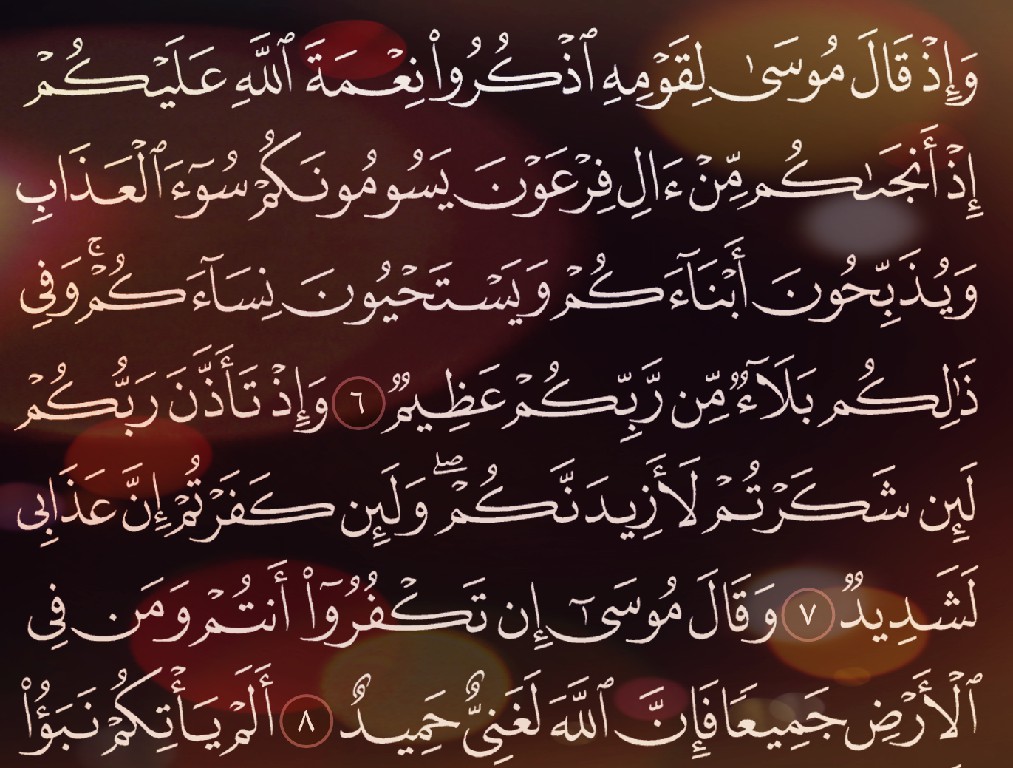 وَإِذْ قَالَ مُوسَىٰ لِقَوْمِهِ ٱذْكُرُوا۟ نِعْمَةَ ٱللَّهِ عَلَيْكُمْ
إِذْ أَنجَىٰكُم مِّنْ ءَالِ فِرْعَوْنَ يَسُومُونَكُمْ سُوٓءَ ٱلْعَذَابِ
وَيُذَبِّحُونَ أَبْنَآءَكُمْ وَيَسْتَحْيُونَ نِسَآءَكُمْ ۚ وَفِى
ذَٰلِكُم بَلَآءٌ مِّن رَّبِّكُمْ عَظِيمٌ ٦ وَإِذْ تَأَذَّنَ رَبُّكُمْ
لَئِن شَكَرْتُمْ لَأَزِيدَنَّكُمْ ۖ وَلَئِن كَفَرْتُمْ إِنَّ عَذَابِى
لَشَدِيدٌ ٧ وَقَالَ مُوسَىٰٓ إِن تَكْفُرُوٓا۟ أَنتُمْ وَمَن فِى
ٱلْأَرْضِ جَمِيعًا فَإِنَّ ٱللَّهَ لَغَنِىٌّ حَمِيدٌ ٨ أَلَمْ يَأْتِكُمْ نَبَؤُا۟